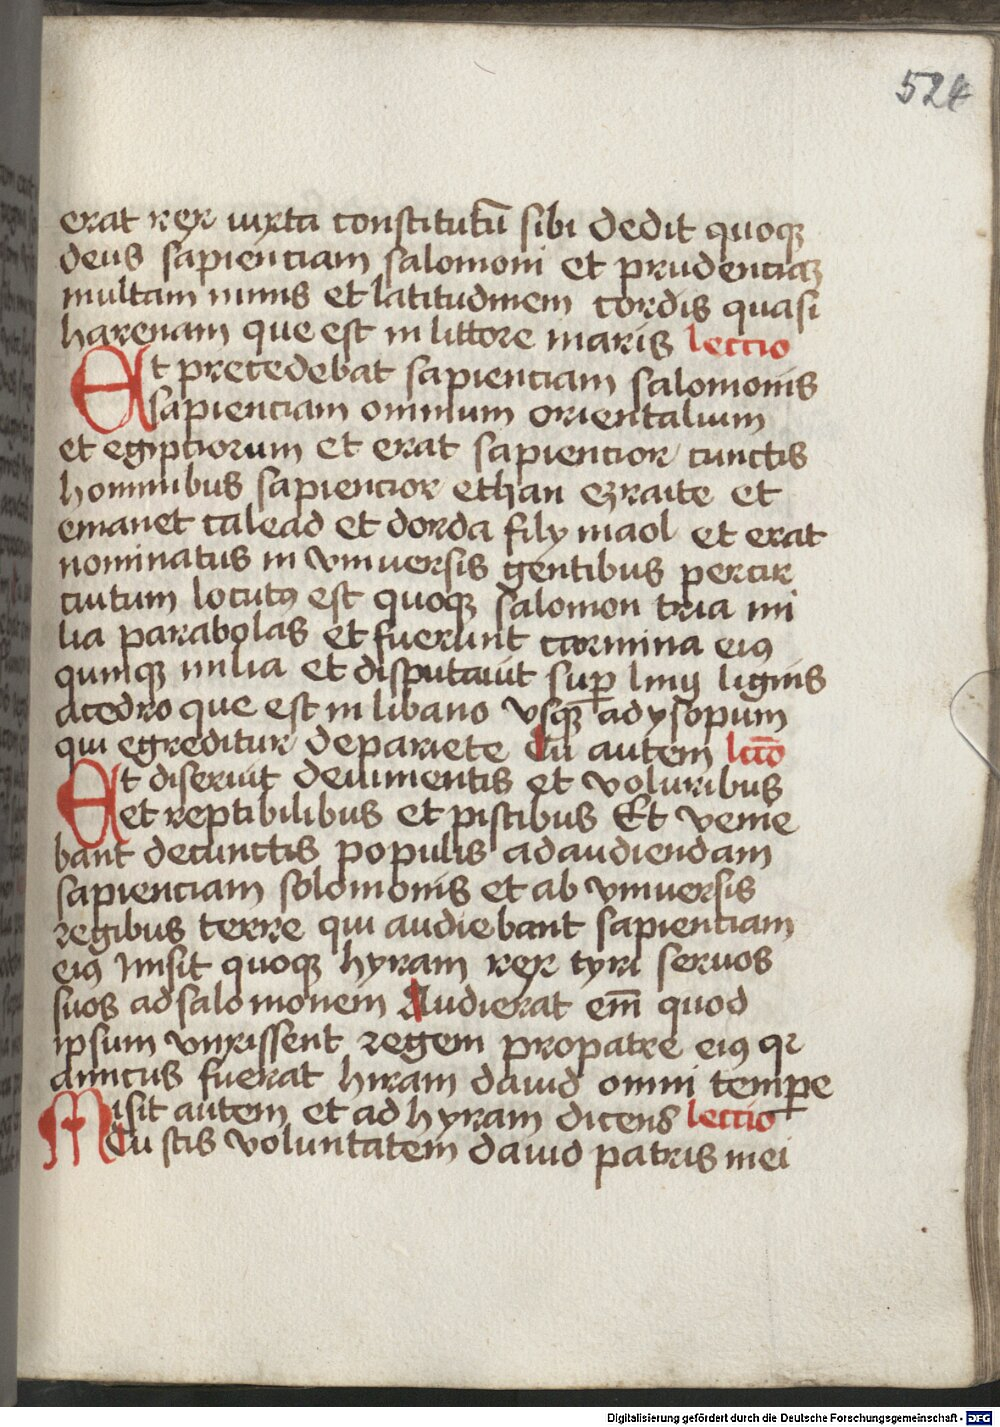 524
erat rex iuxta constitutū sibi dedit quoqꝫ
deus sapienciam salomoni et prudenciaꝫ
multam nimis et latitudinem cordis quasi
harenam que est in littore maris lectio
Et precedebat sapienciam salomonis
sapienciam omnium orientalium
et egipciorum et erat sapiencior cunctis
hominibus sapiencior ethan ezraite et
emanet calead et dorda filij maol et erat
nominatus in vniuersis gentibus percir
cuitum locutꝰ est quoqꝫ salomon tria mi
lia parabolas et fuerunt carmina eiꝰ
quinqꝫ milia et disputauit suꝑ lingy lignis
acedro que est in libano vsqꝫ ad ysopum
qui egreditur depariete Tu autem lccō
Et diseruit deiumentis et volucribus
et reptibilibus et piscibus Et venie
bant decunctis populis adaudiendam
sapienciam solomonis et ab vniuersis
regibus terre qui audiebant sapienciam
eiꝰ Misit quoqꝫ hyram rex tyri seruos
suos adsalomonem Audierat em̄ quod
ipsum vnxissent regem propatre eiꝰ qꝛ
amicus fuerat hiram dauid omni tempe
Misit autem et ad hyram dicens lectio
Tu scis voluntatem dauid patris mei
Digitalisierung gefördert durch die Deutsche Forschungsgemeinschaft - DFG